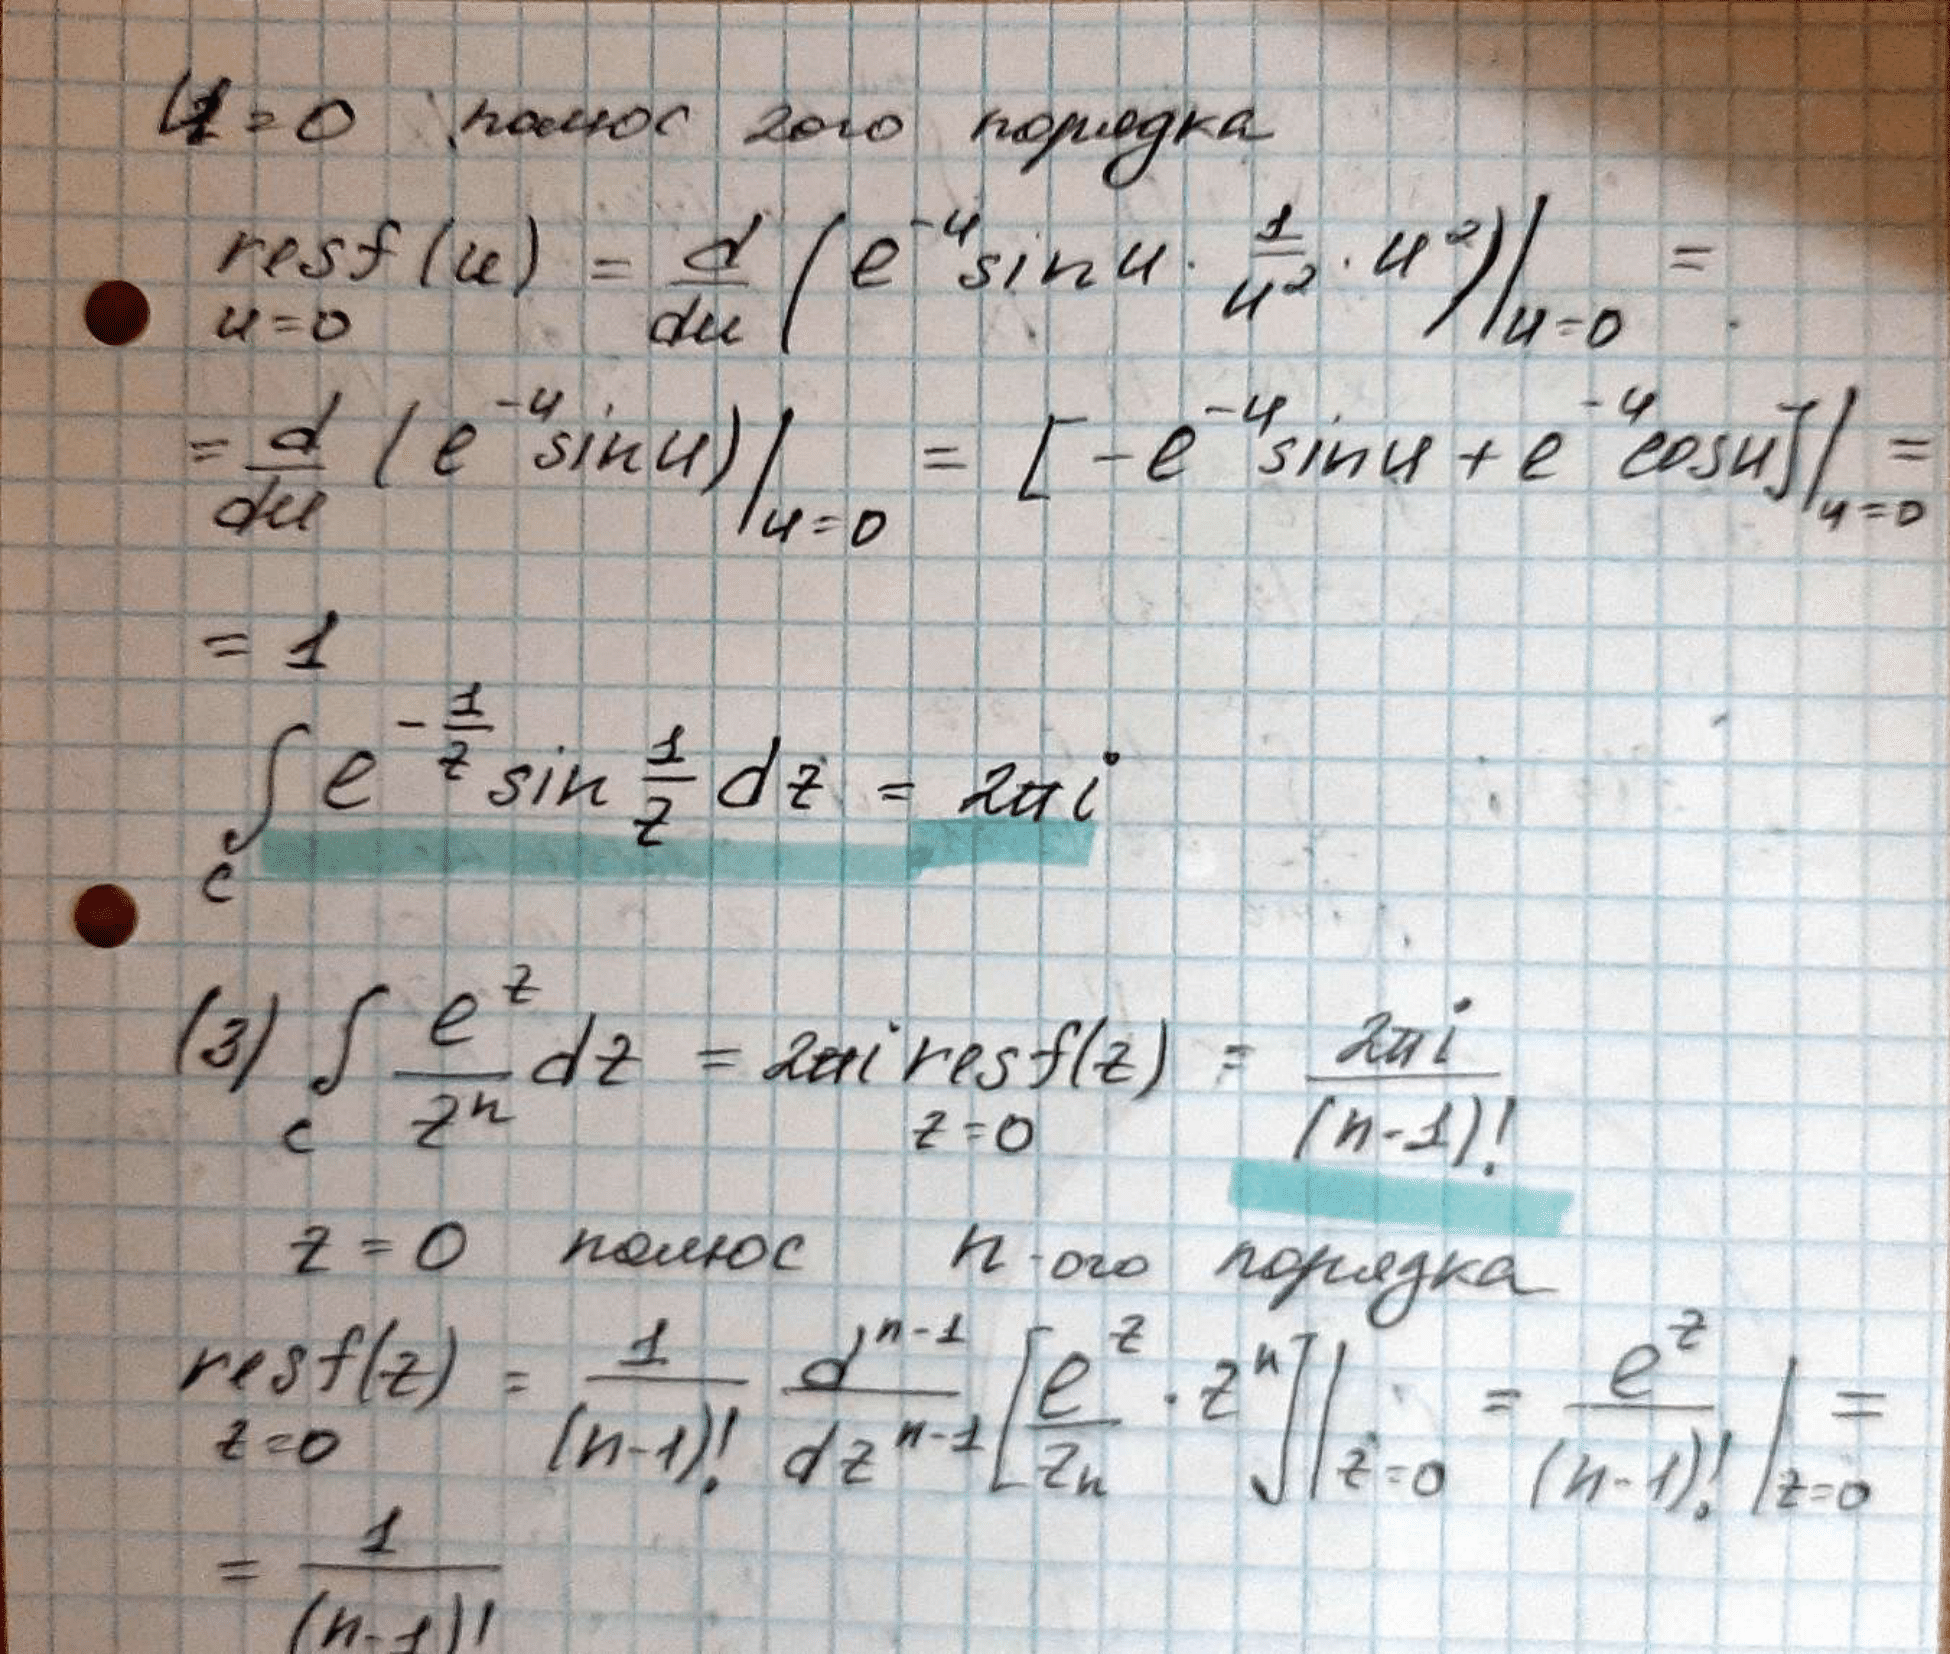 u = 0 полюс 2ого порядка
res f(u) = d/du (e^{-u} sin u · 1/u² · u²)|_{u=0} =
u=0
= d/du (e^{-u} sin u)|_{u=0} = [-e^{-u} sin u + e^{-u} cos u]|_{u=0} =
= 1
∫_c e^{-1/z} sin 1/z dz = 2πi
(3) ∫_c e^z/z^n dz = 2πi res f(z) = 2πi/(n-1)!
z=0
z = 0 полюс n-ого порядка
res f(z) = 1/(n-1)! d^{n-1}/dz^{n-1} [e^z/z_n · z^n]|_{z=0} = e^z/(n-1)! |_{z=0} =
z=0
= 1/(n-1)!